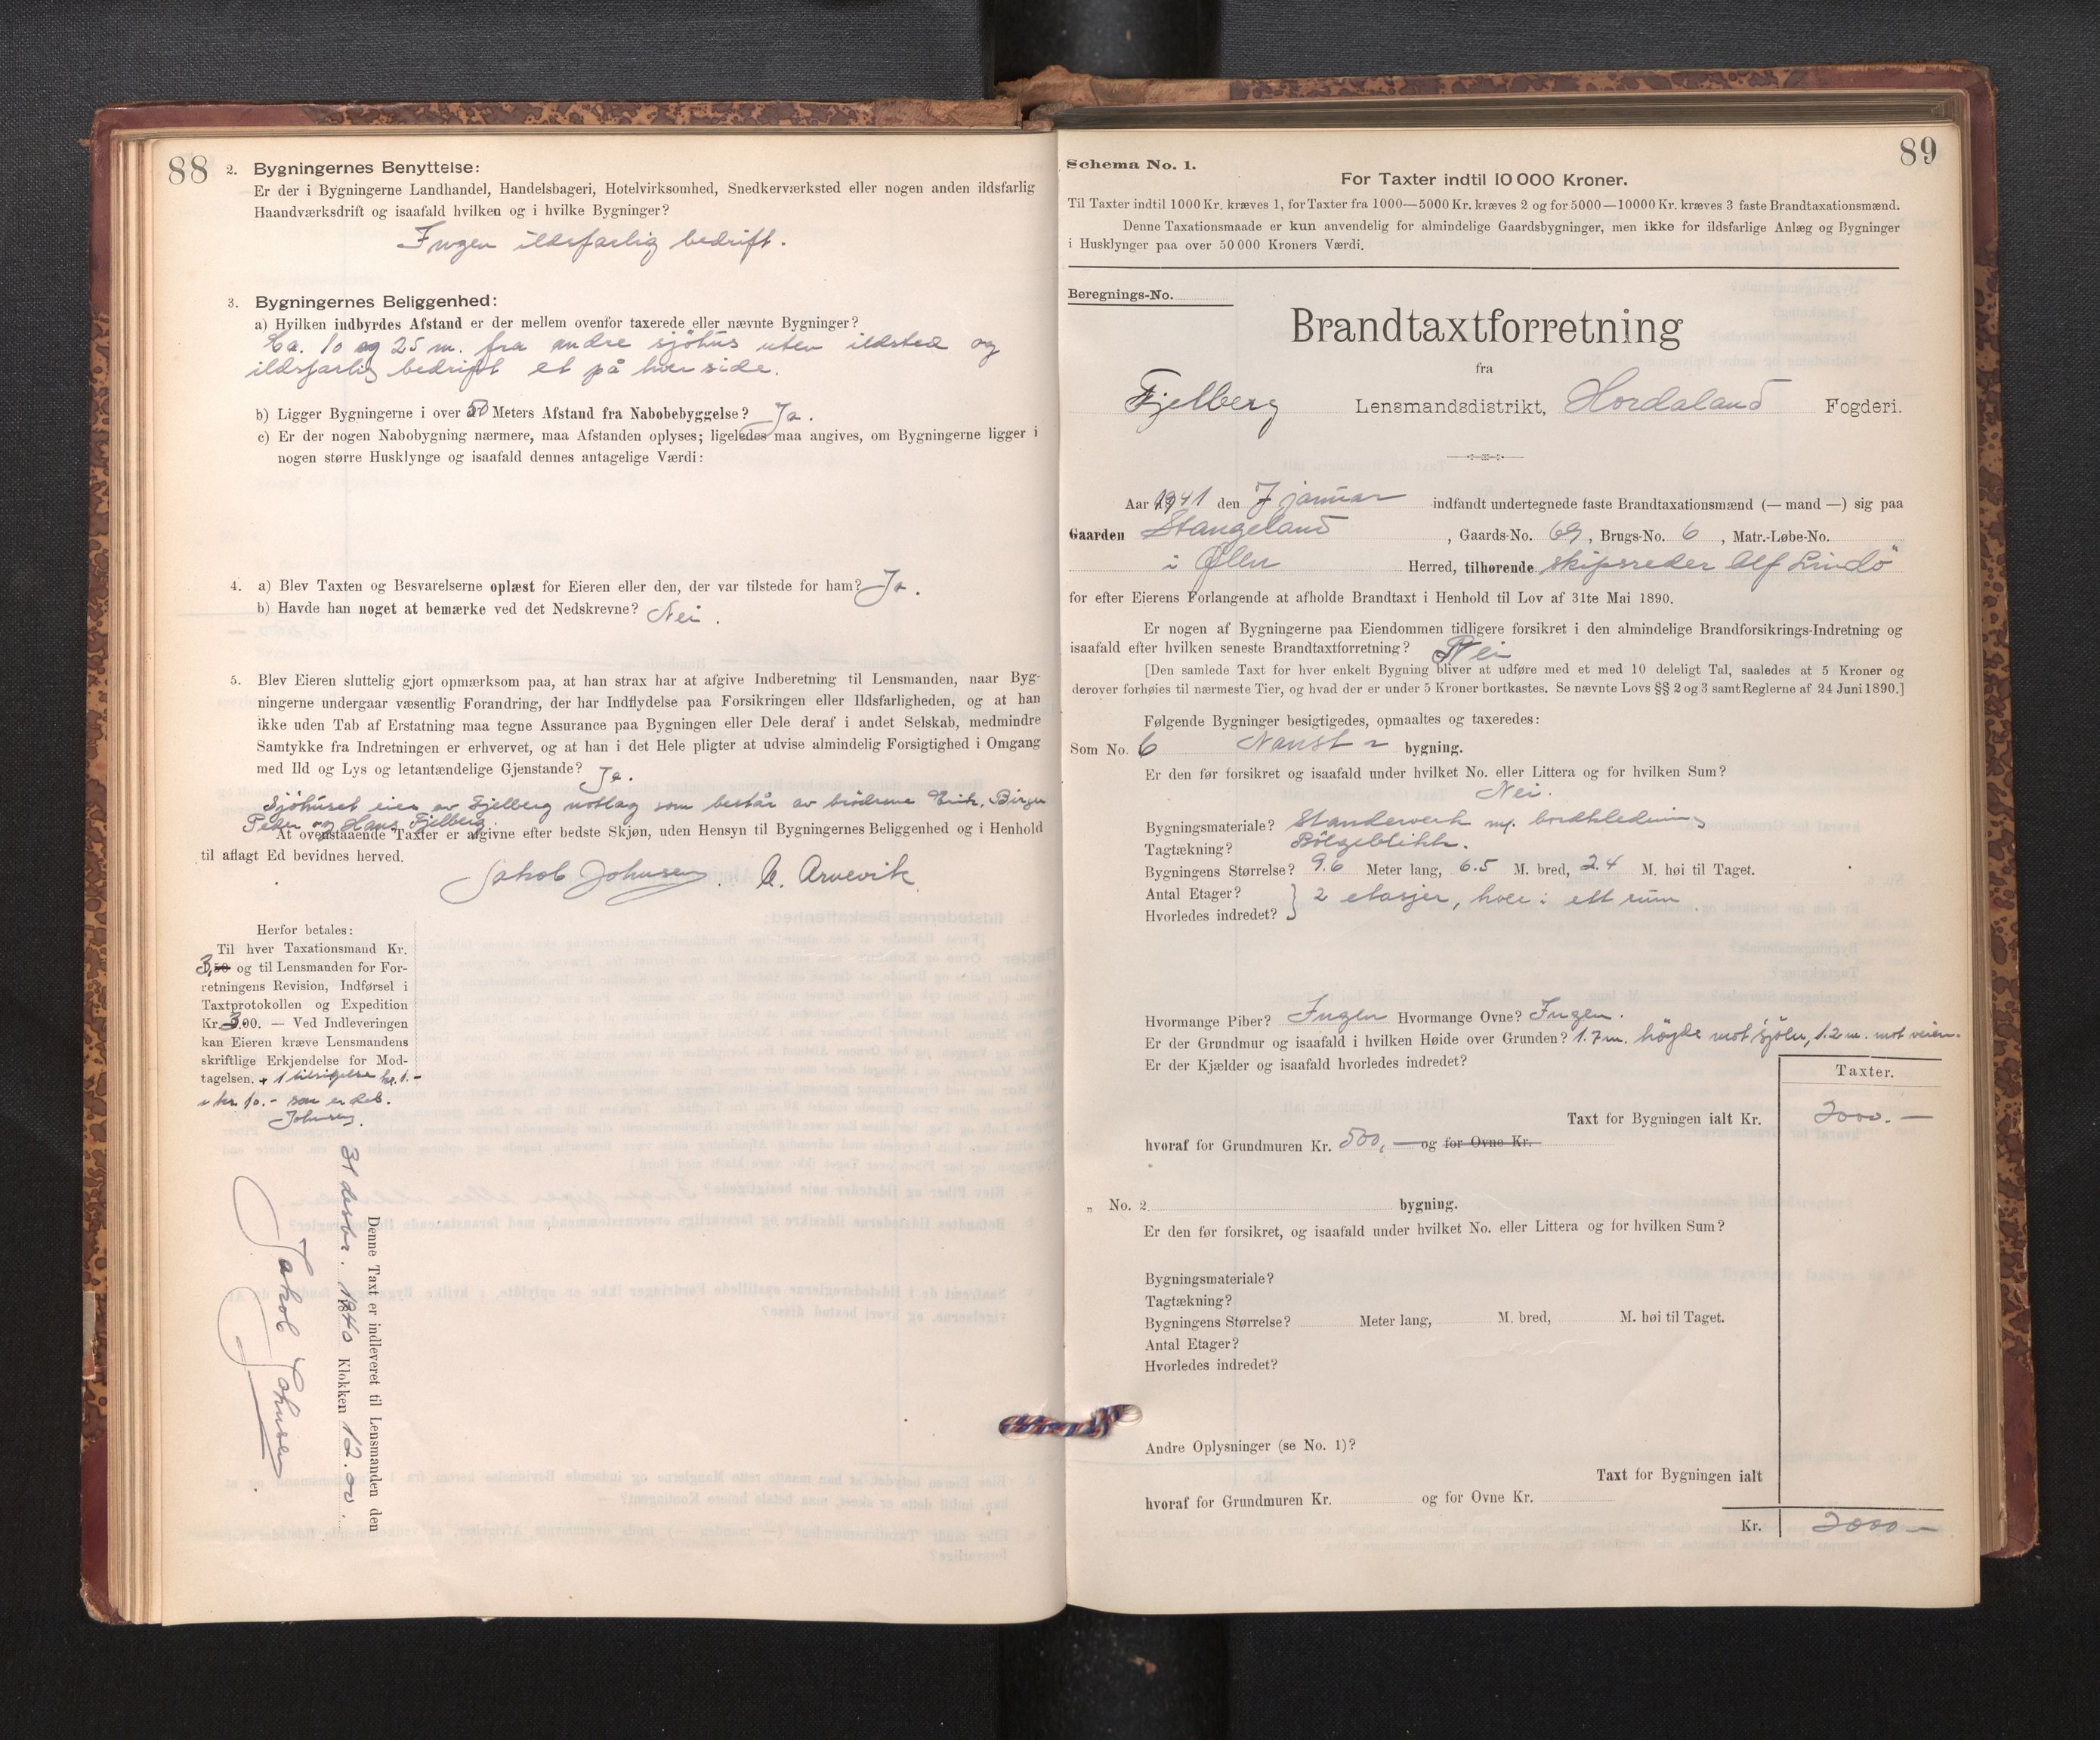 88
2. Bygningernes Benyttelse:
Er der i Bygningerne Landhandel, Handelsbageri, Hotelvirksomhed, Snedkerværksted eller nogen anden ildsfarlig
Haandværksdrift og isaafald hvilken og i hvilke Bygninger?
Ingen ildsfarlig bedrift.
3. Bygningernes Beliggenhed:
a) Hvilken indbyrdes Afstand er der mellem ovenfor taxerede eller nævnte Bygninger?
Ca. 10 og 25 m. fra andre sjöhus uten ildsted og
ildsfarlig bedrift et på hver side.
b) Ligger Bygningerne i over 50 Meters Afstand fra Nabobebyggelse? Ja.
c) Er der nogen Nabobygning nærmere, maa Afstanden oplyses; ligeledes maa angives, om Bygningerne ligger i
nogen større Husklynge og isaafald dennes antagelige Værdi:
4. a) Blev Taxten og Besvarelserne oplæst for Eieren eller den, der var tilstede for ham? Ja.
b) Havde han noget at bemærke ved det Nedskrevne? Nei.
5. Blev Eieren sluttelig gjort opmærksom paa, at han strax har at afgive Indberetning til Lensmanden, naar Byg-
ningerne undergaar væsentlig Forandring, der har Indflydelse paa Forsikringen eller Ildsfarligheden, og at han
ikke uden Tab af Erstatning maa tegne Assurance paa Bygningen eller Dele deraf i andet Selskab, medmindre
Samtykke fra Indretningen er erhvervet, og at han i det Hele pligter at udvise almindelig Forsigtighed i Omgang
med Ild og Lys og letantændelige Gjenstande? Ja.
Sjöhuset eies av Fjelberg notlag som består av brödrene Erik, Birger
Peder og Hans Fjelberg.
At ovenstaaende Taxter er afgivne efter bedste Skjøn, uden Hensyn til Bygningernes Beliggenhed og i Henhold
til aflagt Ed bevidnes herved.
Jakob Johnsen. C. Arnevik
Herfor betales:
Til hver Taxationsmand Kr.
3,50 og til Lensmanden for For-
retningens Revision, Indførsel i
Taxtprotokollen og Expedition
Kr. 3.00. — Ved Indleveringen
kan Eieren kræve Lensmandens
skriftlige Erkjendelse for Mod-
tagelsen. + 1 tilsigelse kr. 1.-
= kr. 10.- som er bet.
Johnsen.
Denne Taxt er indleveret til Lensmanden den
31 desbr. 1940 Klokken 12.00.
Jakob Johnsen
89
Schema No. 1.
For Taxter indtil 10 000 Kroner.
Til Taxter indtil 1000 Kr. kræves 1, for Taxter fra 1000—5000 Kr. kræves 2 og for 5000—10000 Kr. kræves 3 faste Brandtaxationsmænd.
Denne Taxationsmaade er kun anvendelig for almindelige Gaardsbygninger, men ikke for ildsfarlige Anlæg og Bygninger
i Husklynger paa over 50 000 Kroners Værdi.
Beregnings-No.
Brandtaxtforretning
fra
Fjelberg Lensmandsdistrikt, Hordaland Fogderi.
Aar 1941 den 7 januar indfandt undertegnede faste Brandtaxationsmænd (— mand —) sig paa
Gaarden Stangeland, Gaards-No. 69, Brugs-No. 6, Matr.-Løbe-No.
i Ølen Herred, tilhørende skipsreder Alf Lindö
for efter Eierens Forlangende at afholde Brandtaxt i Henhold til Lov af 31te Mai 1890.
Er nogen af Bygningerne paa Eiendommen tidligere forsikret i den almindelige Brandforsikrings-Indretning og
isaafald efter hvilken seneste Brandtaxtforretning? Nei
[Den samlede Taxt for hver enkelt Bygning bliver at udføre med et med 10 deleligt Tal, saaledes at 5 Kroner og
derover forhøies til nærmeste Tier, og hvad der er under 5 Kroner bortkastes. Se nævnte Lovs §§ 2 og 3 samt Reglerne af 24 Juni 1890.]
Følgende Bygninger besigtigedes, opmaaltes og taxeredes:
Som No. 6 Naust- bygning.
Er den før forsikret og isaafald under hvilket No. eller Littera og for hvilken Sum?
Nei.
Bygningsmateriale? Standerverk m. bordkledning
Tagtækning? Bölgeblikk.
Bygningens Størrelse? 9.6 Meter lang, 6.5 M. bred, 2.4 M. høi til Taget.
Antal Etager?
Hvorledes indredet? } 2 etasjer, hver i ett rum.
Hvormange Piber? Ingen Hvormange Ovne? Ingen.
Er der Grundmur og isaafald i hvilken Høide over Grunden? 1.7 m. höyde mot sjöen, 1.2 m. mot veien.
Er der Kjælder og isaafald hvorledes indredet?
Taxter.
Taxt for Bygningen ialt Kr. 2000.—
hvoraf for Grundmuren Kr. 500,— og for Ovne Kr.
„ No. 2 bygning.
Er den før forsikret, og isaafald under hvilket No. eller Littera og for hvilken Sum?
Bygningsmateriale?
Tagtækning?
Bygningens Størrelse? Meter lang, M. bred, M. høi til Taget.
Antal Etager?
Hvorledes indredet?
Andre Oplysninger (se No. 1)?
Taxt for Bygningen ialt
hvoraf for Grundmuren Kr. og for Ovne Kr.
Kr. 2000—